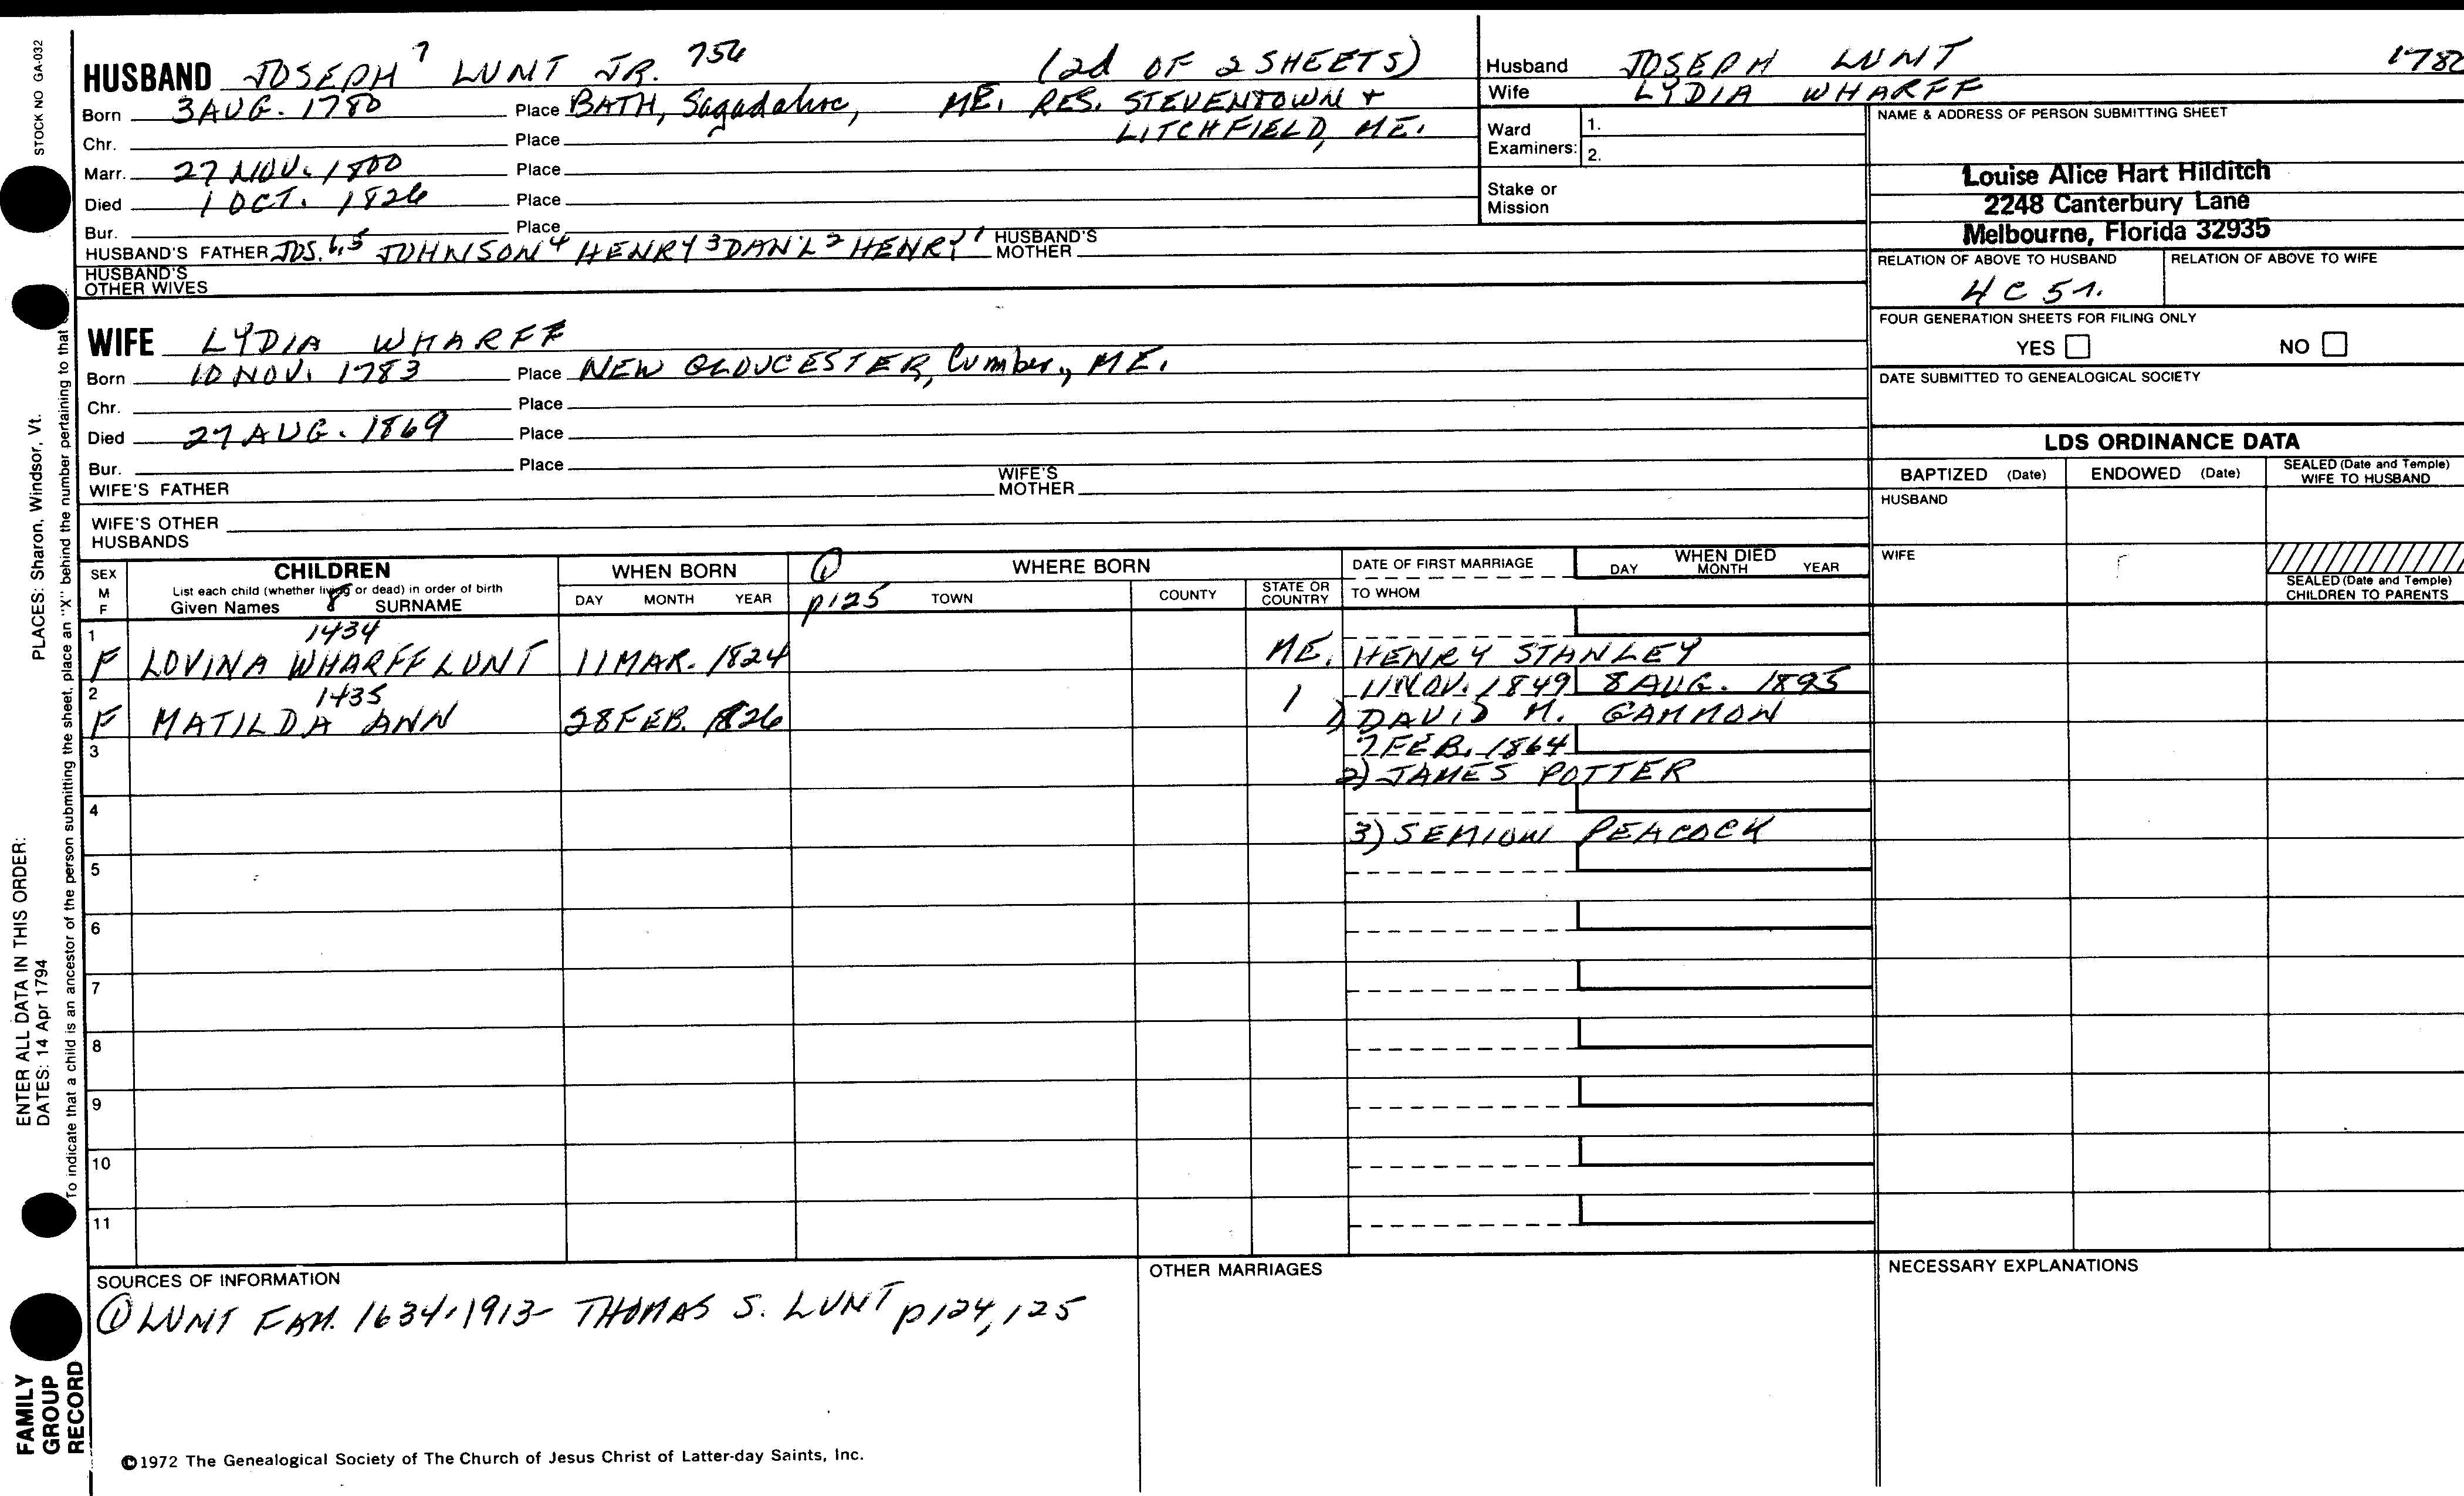 STOCK NO GA-032
HUSBAND JOSEPH 7 LUNT JR. 756 (2d OF 2 SHEETS)
Born 3 AUG. 1780 Place BATH, Sagadahoc, ME. RES. STEVENTOWN +
LITCHFIELD, ME.
Chr. Place
Marr. 27 NOV. 1800 Place
Died 1 OCT. 1826 Place
Bur. Place
HUSBAND'S FATHER JOS. 6,5 JOHNSON 4 HENRY 3 DAN'L 2 HENRY 1 HUSBAND'S MOTHER
HUSBAND'S OTHER WIVES
WIFE LYDIA WHARFF
Born 10 NOV. 1783 Place NEW GLOUCESTER, Cumber., ME.
Chr. Place
Died 27 AUG. 1869 Place
Bur. Place
WIFE'S FATHER WIFE'S MOTHER
WIFE'S OTHER HUSBANDS
Husband JOSEPH LUNT 1780
Wife LYDIA WHARFF
Ward Examiners: 1.
2.
Stake or Mission
NAME & ADDRESS OF PERSON SUBMITTING SHEET
Louise Alice Hart Hilditch
2248 Canterbury Lane
Melbourne, Florida 32935
RELATION OF ABOVE TO HUSBAND RELATION OF ABOVE TO WIFE
4 C 5 r.
FOUR GENERATION SHEETS FOR FILING ONLY
YES NO
DATE SUBMITTED TO GENEALOGICAL SOCIETY
LDS ORDINANCE DATA
BAPTIZED (Date) ENDOWED (Date) SEALED (Date and Temple) WIFE TO HUSBAND
HUSBAND
WIFE
SEALED (Date and Temple) CHILDREN TO PARENTS
SEX M F CHILDREN
List each child (whether living or dead) in order of birth
Given Names 8 SURNAME
WHEN BORN
DAY MONTH YEAR
1 p125
WHERE BORN
TOWN COUNTY STATE OR COUNTRY
DATE OF FIRST MARRIAGE
TO WHOM
WHEN DIED
DAY MONTH YEAR
1 1434
F LOVINA WHARFF LUNT 11 MAR. 1824 ME. HENRY STANLEY
2 1435 11 NOV. 1849 8 AUG. 1895
F MATILDA ANN 28 FEB. 1826 1 1) DAVID M. GAMMON
3 7 FEB. 1864
2) JAMES POTTER
4
3) SEMION PEACOCK
5
6
7
8
9
10
11
SOURCES OF INFORMATION
① LUNT FAM. 1634-1913- THOMAS S. LUNT p124, 125
OTHER MARRIAGES
NECESSARY EXPLANATIONS
©1972 The Genealogical Society of The Church of Jesus Christ of Latter-day Saints, Inc.
FAMILY GROUP RECORD
ENTER ALL DATA IN THIS ORDER:
DATES: 14 Apr 1794 PLACES: Sharon, Windsor, Vt.
To indicate that a child is an ancestor of the person submitting the sheet, place an "X" behind the number pertaining to that